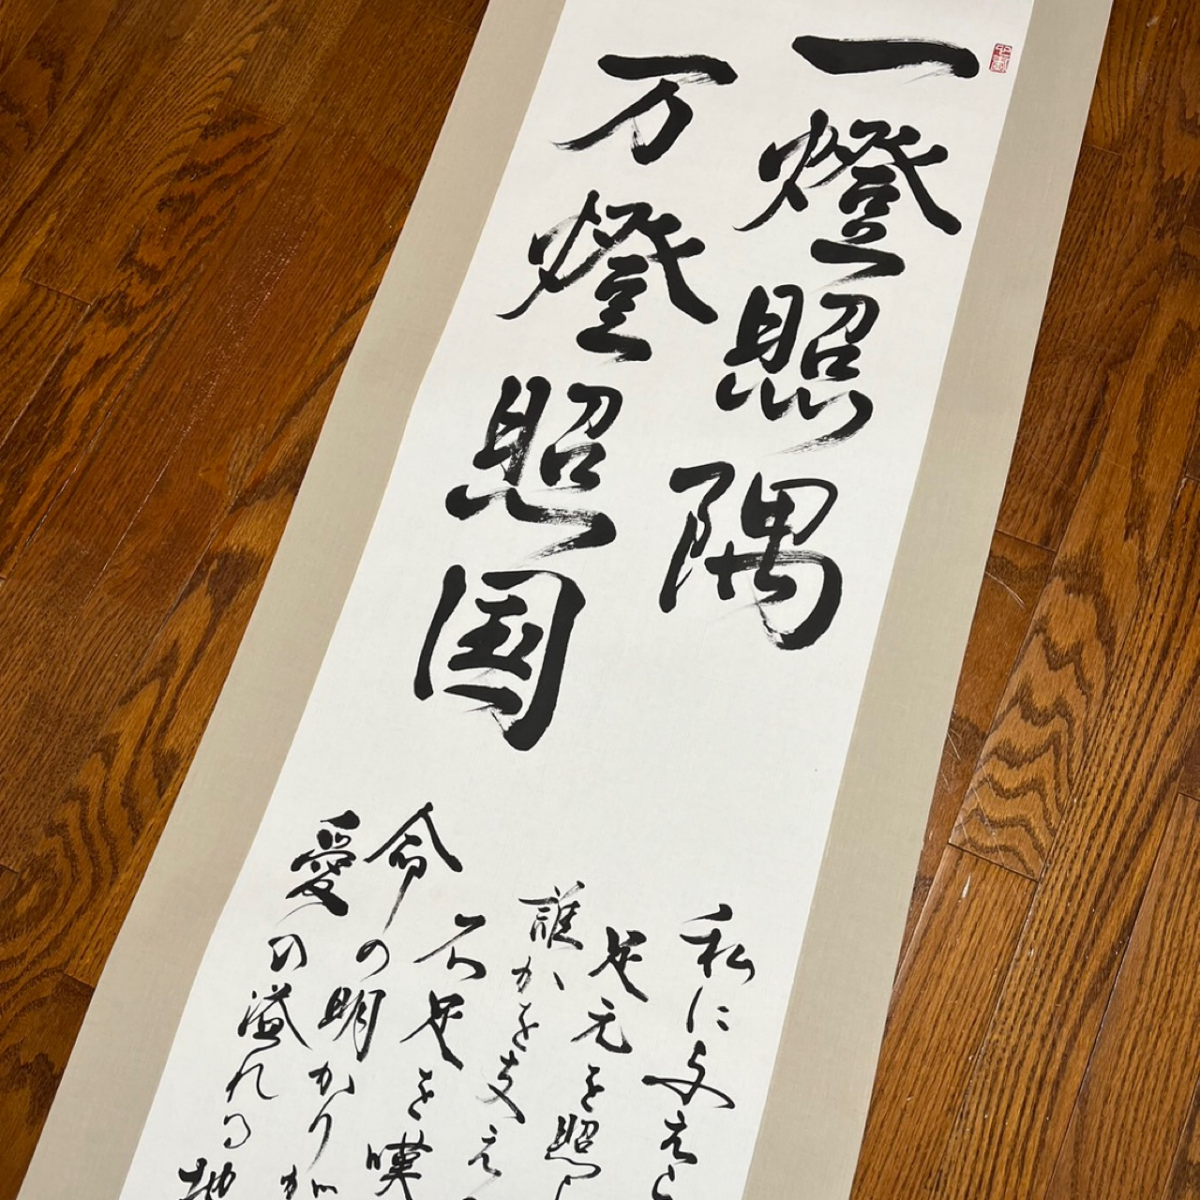 一燈照隅
万燈照国
私に与えら
足元を照
誰かを支え
不足を嘆
命の明かりが
愛の溢れる地